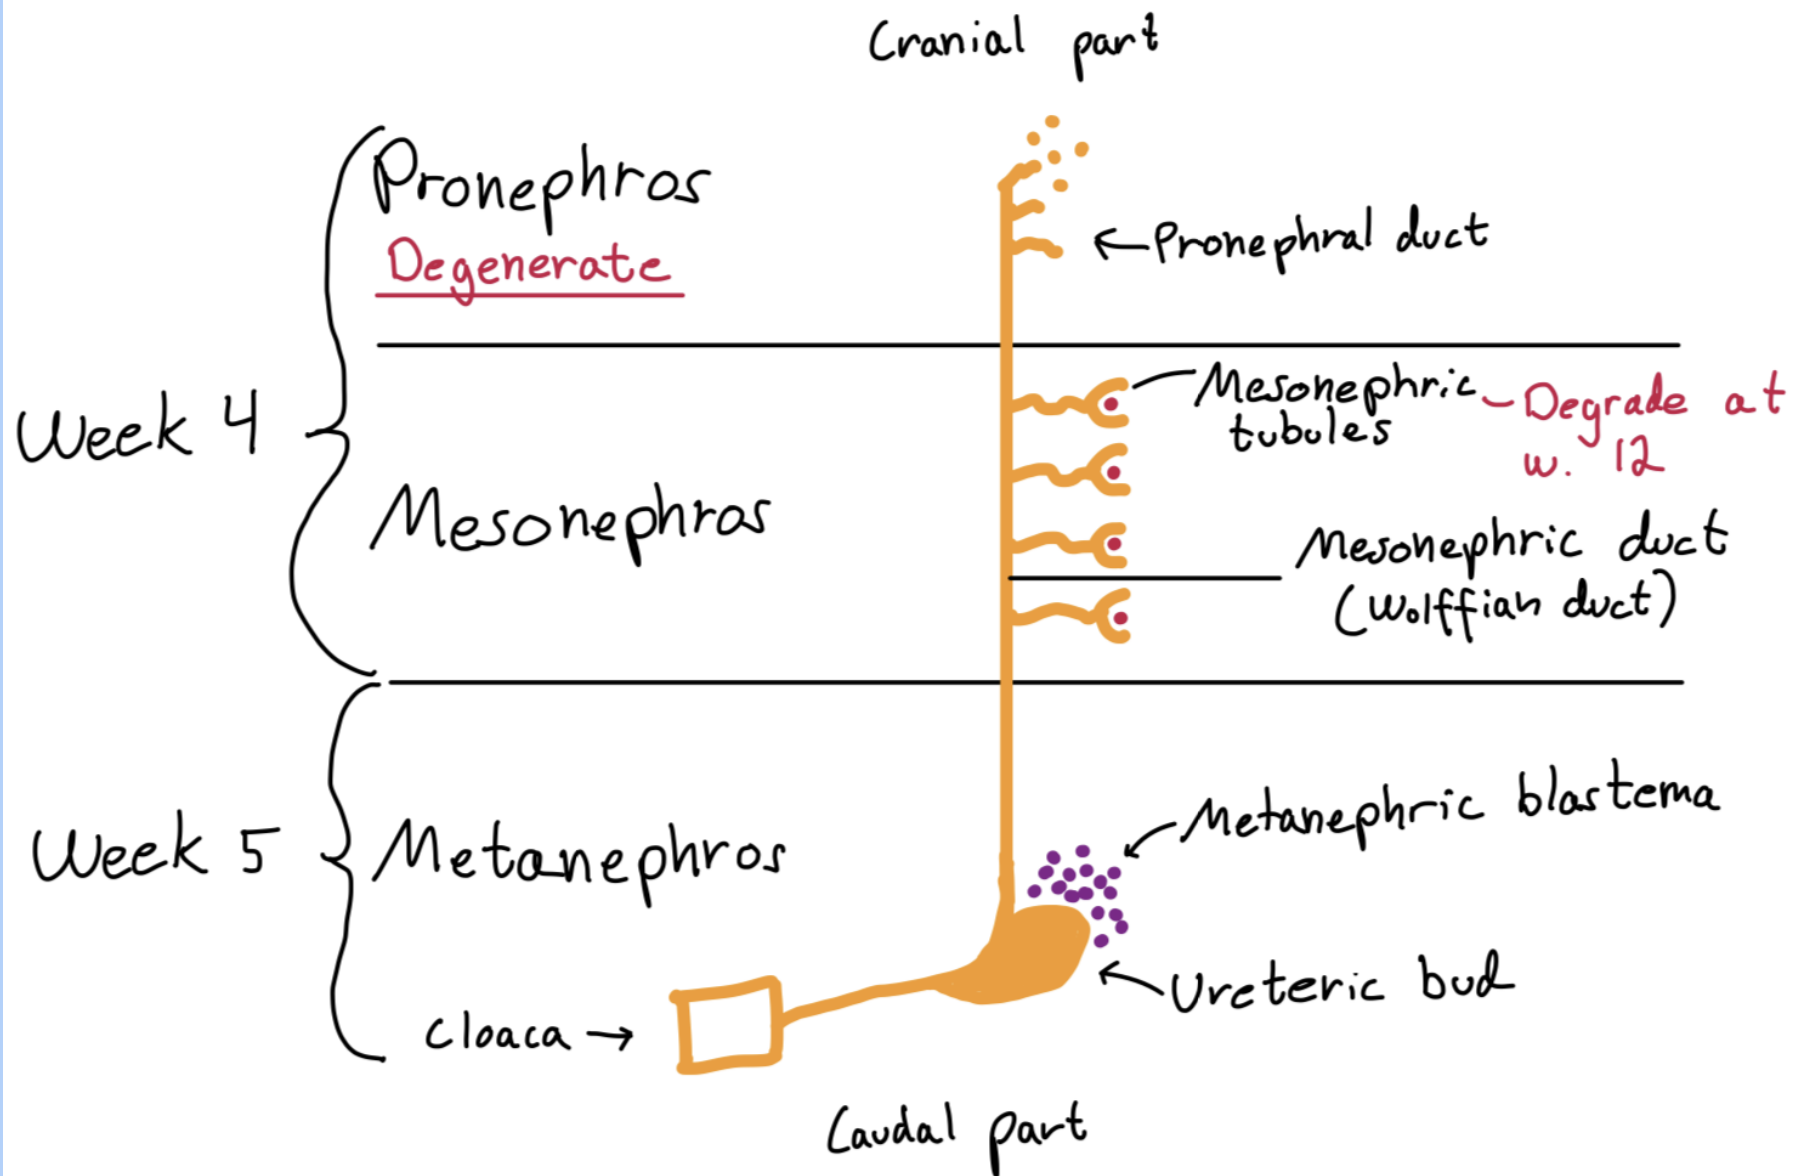 Cranial part
Pronephros
Degenerate
←Pronephral duct
Week 4
Mesonephric
tubules
Degrade at
w. 12
Mesonephros
Mesonephric duct
(Wolffian duct)
Week 5
Metanephros
Metanephric blastema
Ureteric bud
Cloaca →
Caudal part